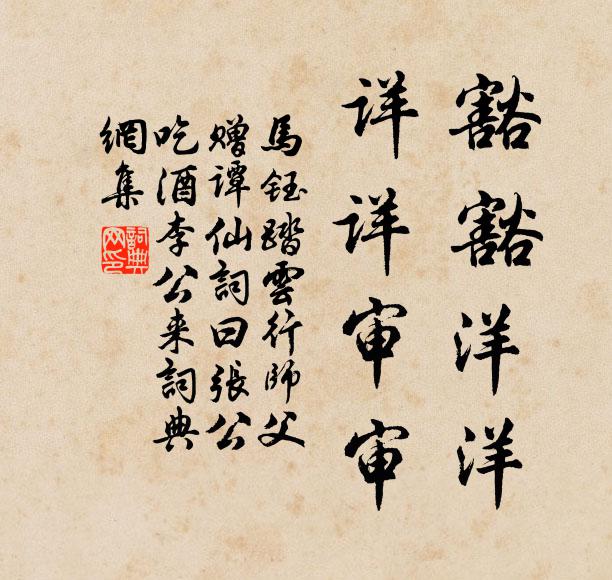 豁豁洋洋
详详审审
馬鈺踏雲行師父
赠谭仙詞曰張公
吃酒李公来詞典
網集
詞典網印